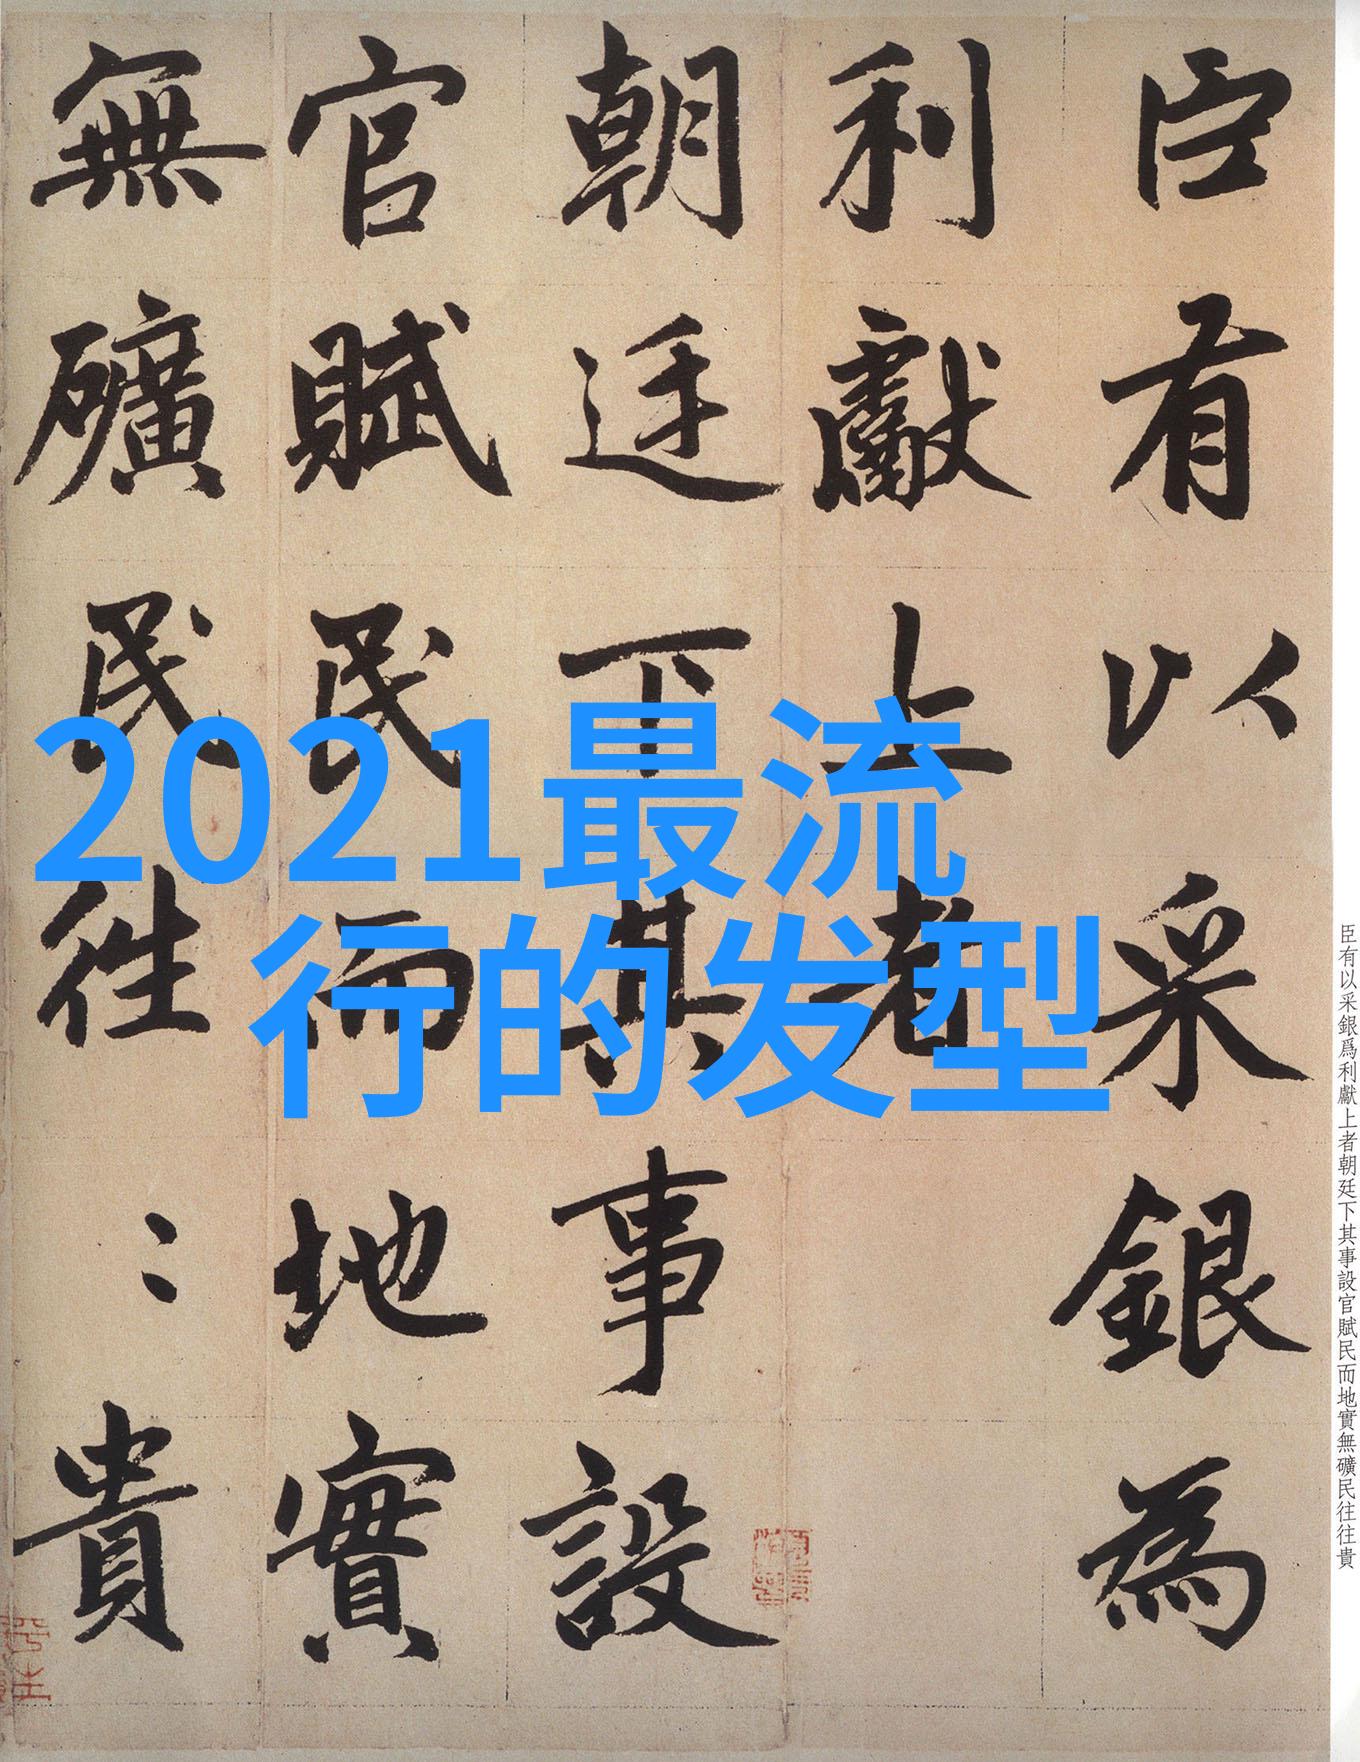 臣有以采銀為
利獻上者
朝廷下其事設
官賦民而地實
無礦民往〻貴
2021最流
行的发型
臣有以采銀爲利獻上者朝廷下其事設官賦民而地實無礦民往往貴